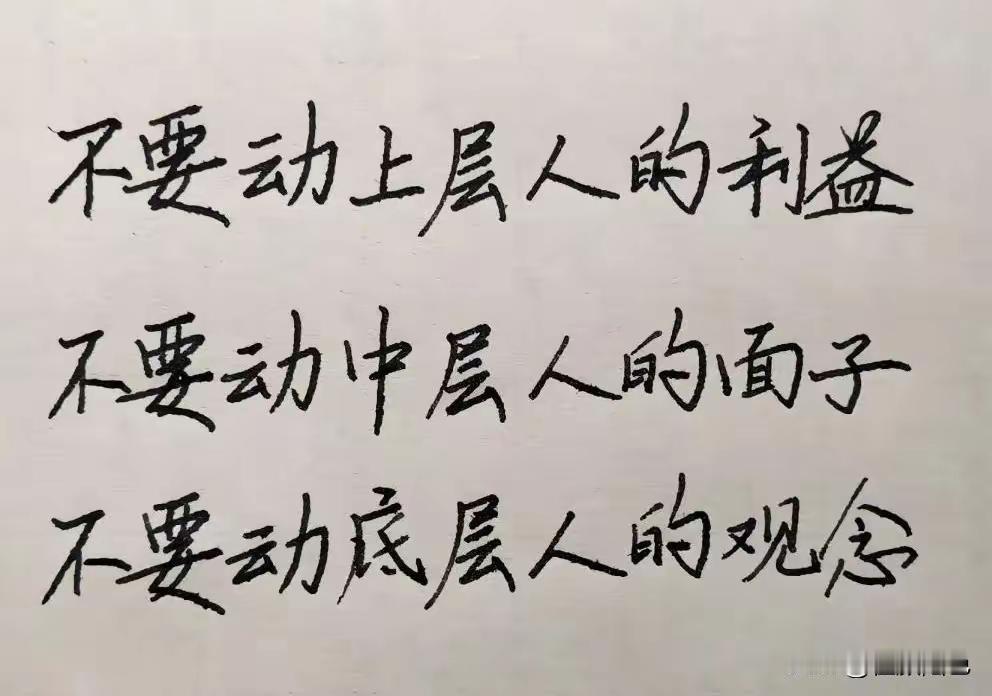 不要动上层人的利益
不要动中层人的面子
不要动底层人的观念